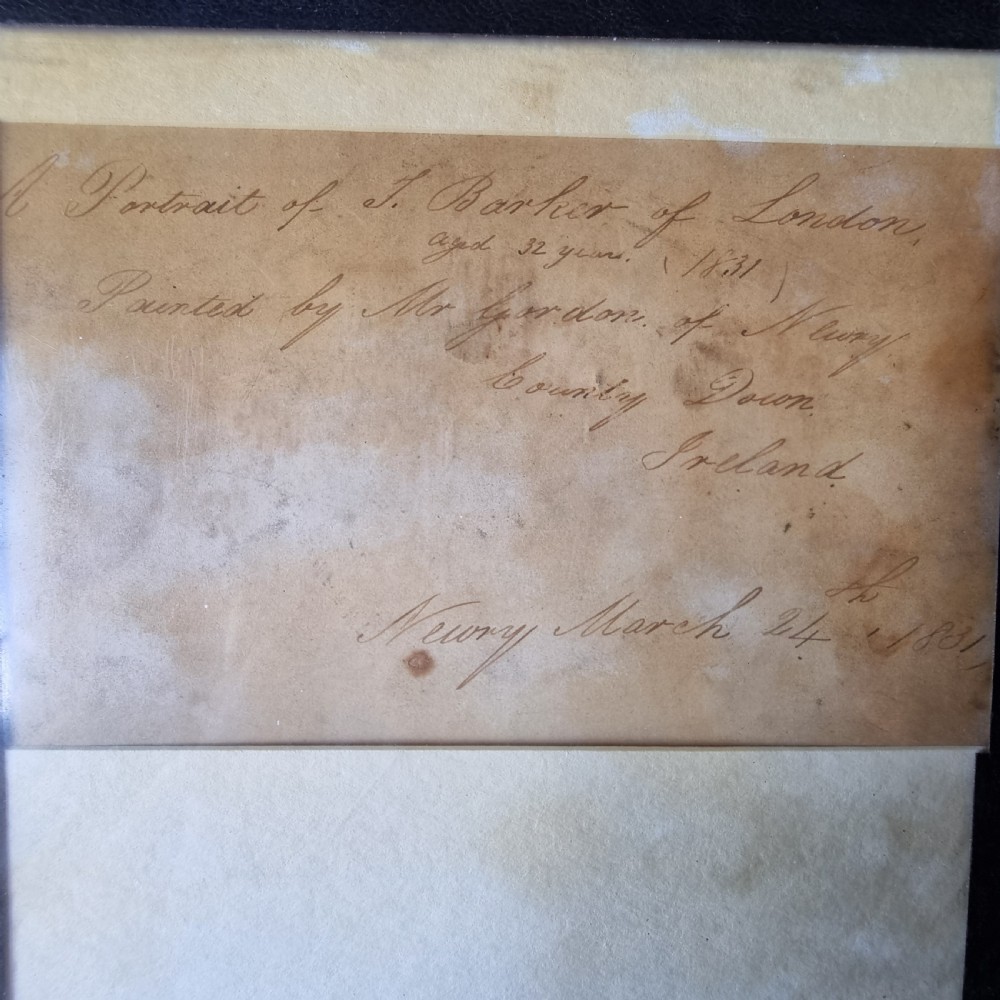 A Portrait of T. Barker of London,
aged 32 years. (1831)
Painted by Mr Gordon. of Newry
County Down.
Ireland.
Newry March 24th 1831,